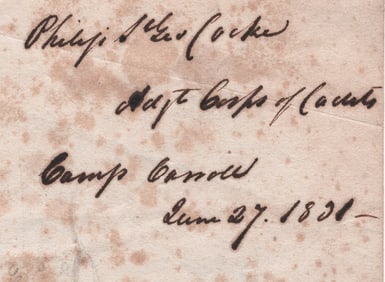 Philip St. Geo Cocke
Adjt Corps of Cadets
Camp Carroll
June 27. 1831 -